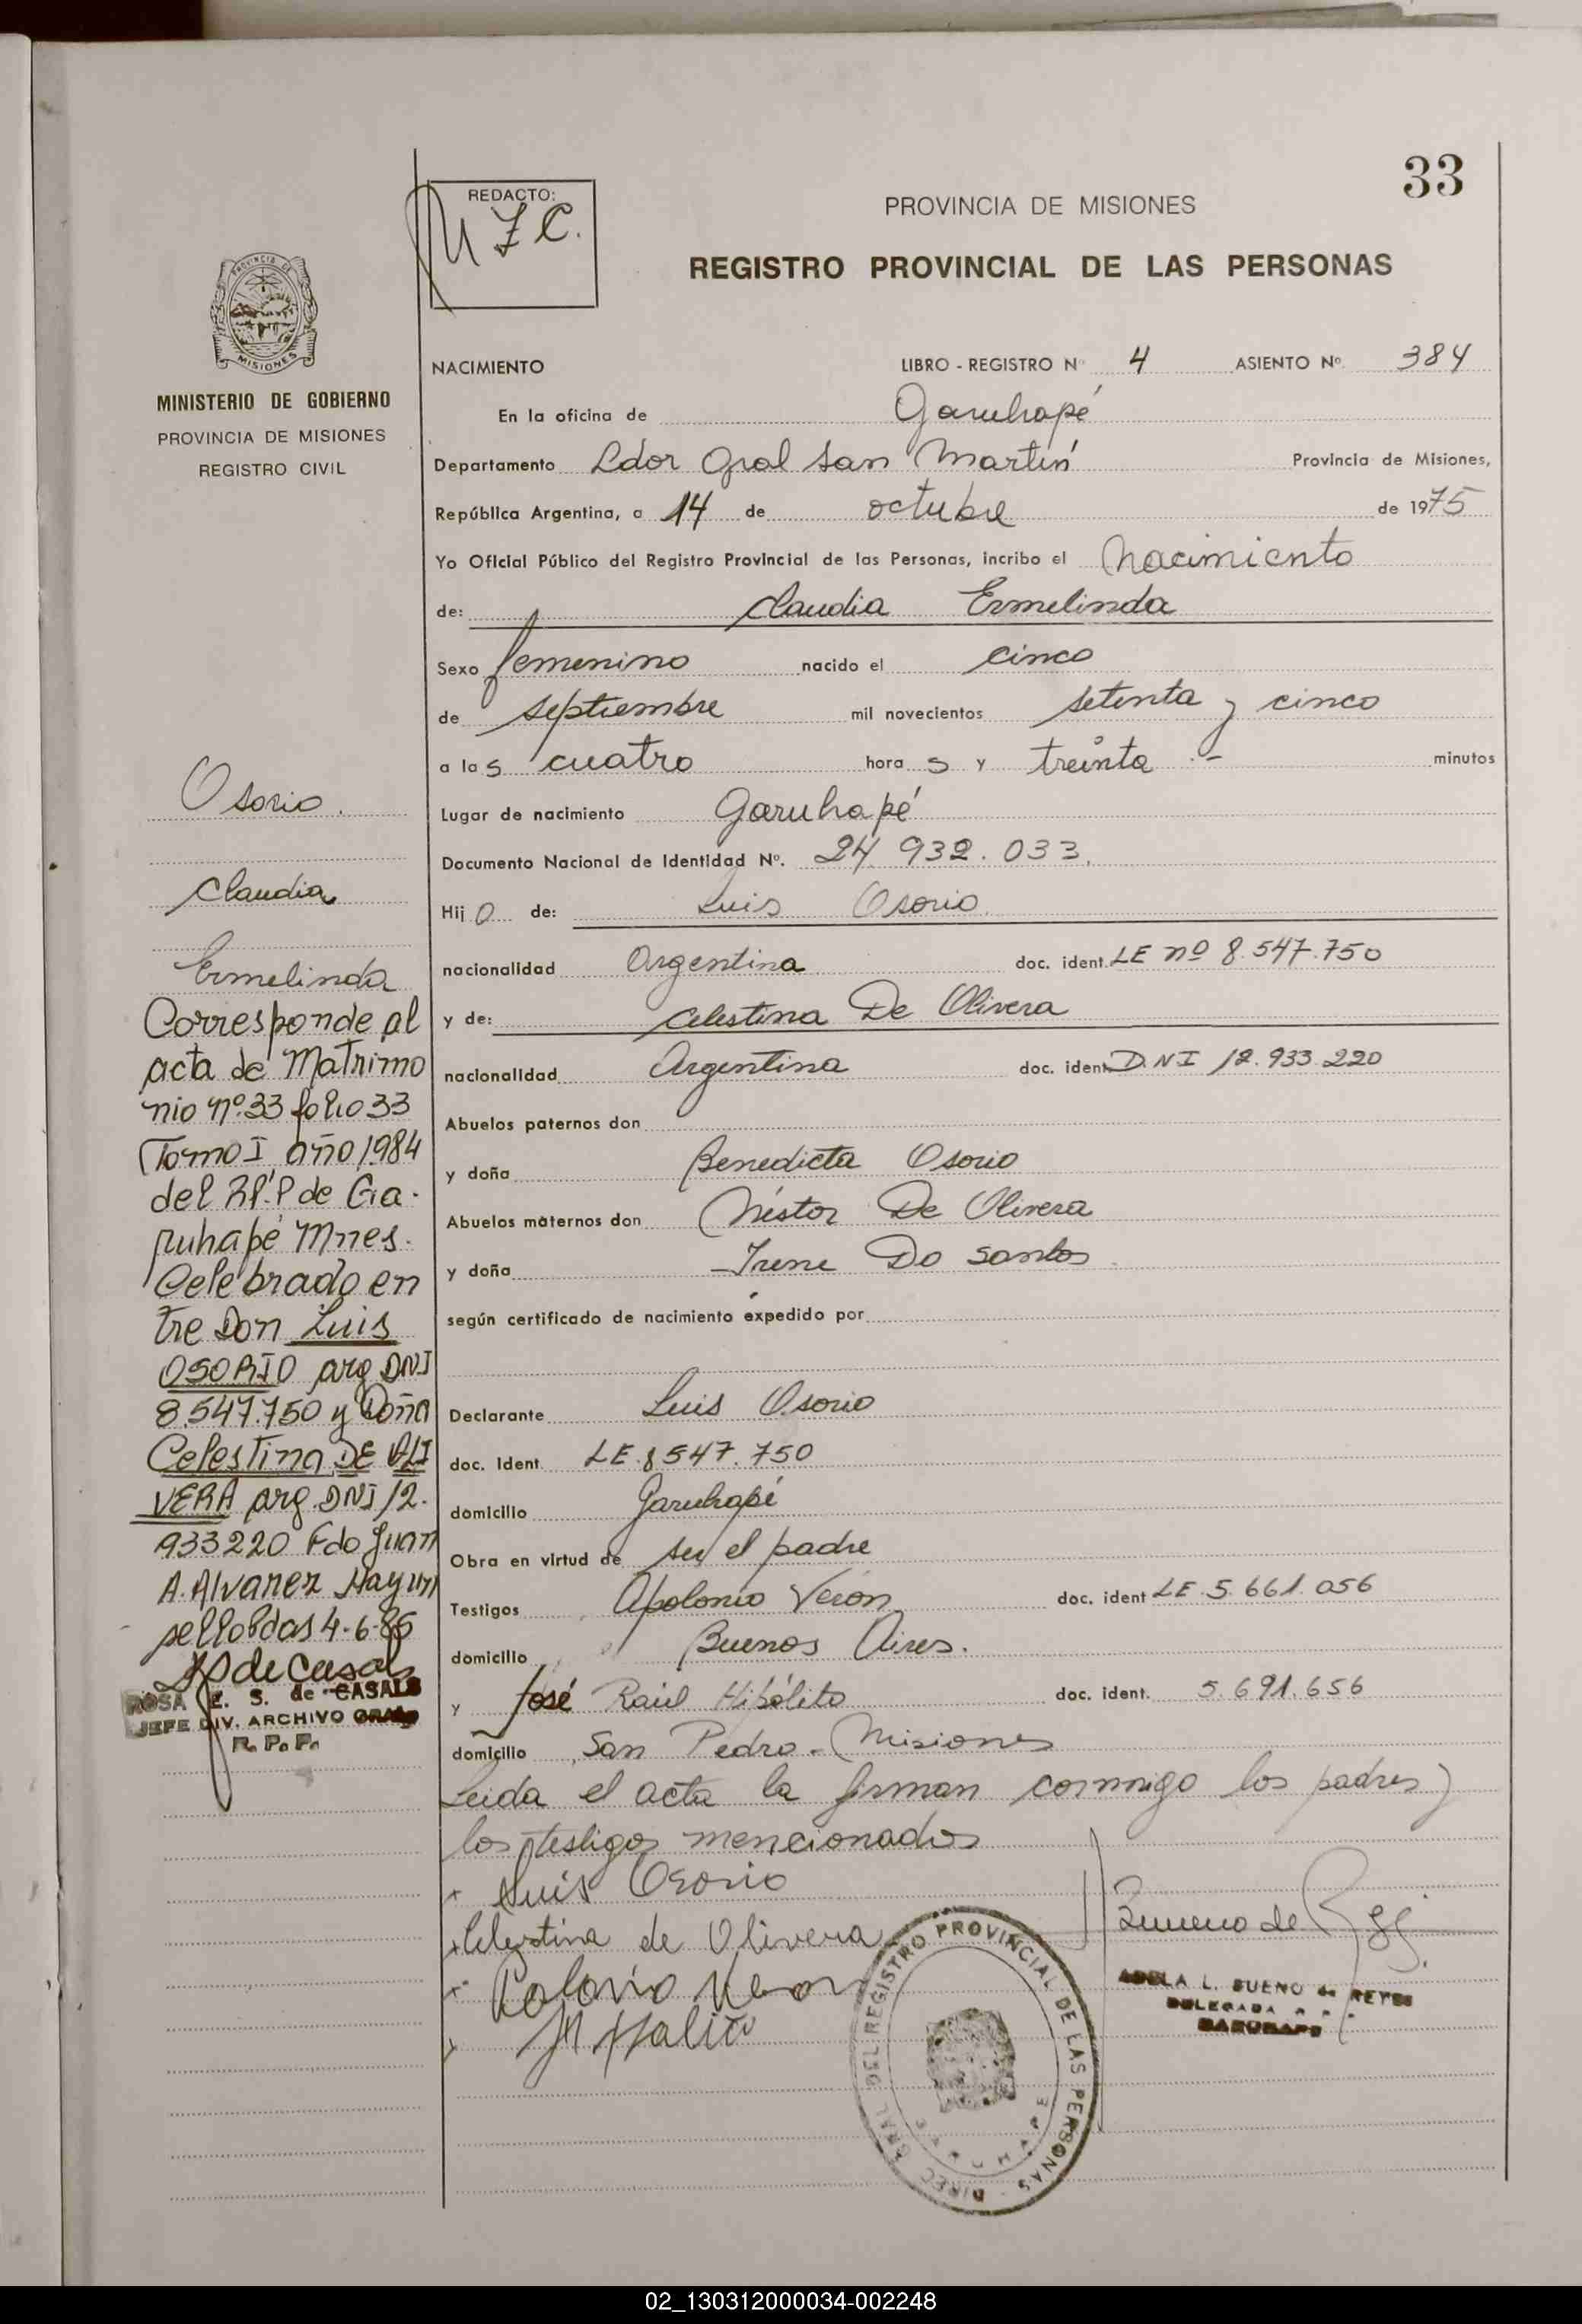 33
REDACTO:
PROVINCIA DE MISIONES
REGISTRO PROVINCIAL DE LAS PERSONAS
PROVINCIA DE
MISIONES
MINISTERIO DE GOBIERNO
PROVINCIA DE MISIONES
REGISTRO CIVIL
NACIMIENTO LIBRO - REGISTRO Nº 4 ASIENTO Nº 384
En la oficina de Garuhapé
Departamento Ldor Gral San Martín Provincia de Misiones,
República Argentina, a 14 de octubre de 1975
Yo Oficial Público del Registro Provincial de las Personas, incribo el Nacimiento
de: Claudia Ermelinda
Sexo femenino nacido el cinco
de septiembre mil novecientos setenta y cinco
a las cuatro horas y treinta .- minutos
Lugar de nacimiento Garuhapé
Documento Nacional de Identidad Nº. 24 932.033.
Hijo de: Luis Osorio
nacionalidad Argentina doc. ident. LE nº 8.547.750
y de: Celestina De Olivera
nacionalidad Argentina doc. ident. D.N.I 12.933.220
Abuelos paternos don
y doña Benedicta Osorio
Abuelos maternos don Néstor De Olivera
y doña Irene Do Santos
según certificado de nacimiento expedido por
Declarante Luis Osorio
doc. Ident. LE.8547.750
domicilio Garuhapé
Obra en virtud de ser el padre
Testigos Apolonio Verón doc. ident LE 5.661.056
domicilio Buenos Aires.
y José Raúl Hipólito doc. ident. 5.691.656
domicilio San Pedro - Misiones
Leida el acta la firman conmigo los padres y
los testigos mencionados
Luis Osorio
Celestina de Olivera
Osorio.
Claudia
Ermelinda
Corresponde al
acta de Matrimo
nio nº.33 folio 33
Tomo I año 1984
del R.P.P de Ga-
ruhapé Mnes.
Celebrado en
tre Don Luis
OSORIO arg DNI
8.547.750 y Doña
Celestina DE OLI
VERA arg. DNI 12.
933220 Fdo Juan
A. Alvarez Hay un
sello Pdas 4-6-86
ROSA E. S. de CASALS
JEFE DIV. ARCHIVO GRAL
R. P. P.
DIREC GRAL DEL REGISTRO PROVINCIAL DE LAS PERSONAS
GARUHAPE
ADELA L. BUENO de REYES
DELEGADA
GARUHAPE
02_130312000034-002248